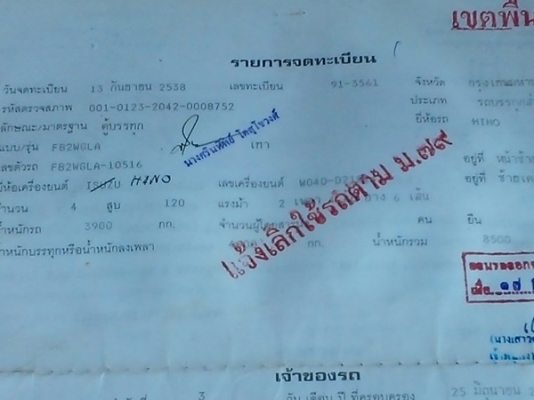 เขตพื้น
รายการจดทะเบียน
วันจดทะเบียน 13 กันยายน 2538 เลขทะเบียน 91-3561 จังหวัด กรุงเทพมหา
รหัสตรวจสภาพ 001-0123-2042-0008752 ประเภท รถบรรทุก
ลักษณะ/มาตรฐาน ตู้บรรทุก ยี่ห้อรถ HINO
แบบ/รุ่น FB2WGLA เทา
เลขตัวรถ FB2WGLA-10516 อยู่ที่
ยี่ห้อเครื่องยนต์ ISUZU HINO เลขเครื่องยนต์ W04D- อยู่ที่
จำนวน 4 สูบ 120 แรงม้า 2 ยาง 6 เส้น
น้ำหนักรถ 3900 กก. จำนวนผู้โดยสาร คน ยืน
น้ำหนักบรรทุกหรือน้ำหนักลงเพลา กก. น้ำหนักรวม 8500
แจ้งเลิกใช้รถตาม ม.๗๙
เมื่อ ๑๗
เจ้าของรถ
3 วัน เดือน ปี ที่ครอบครอง 25 มิถุนายน